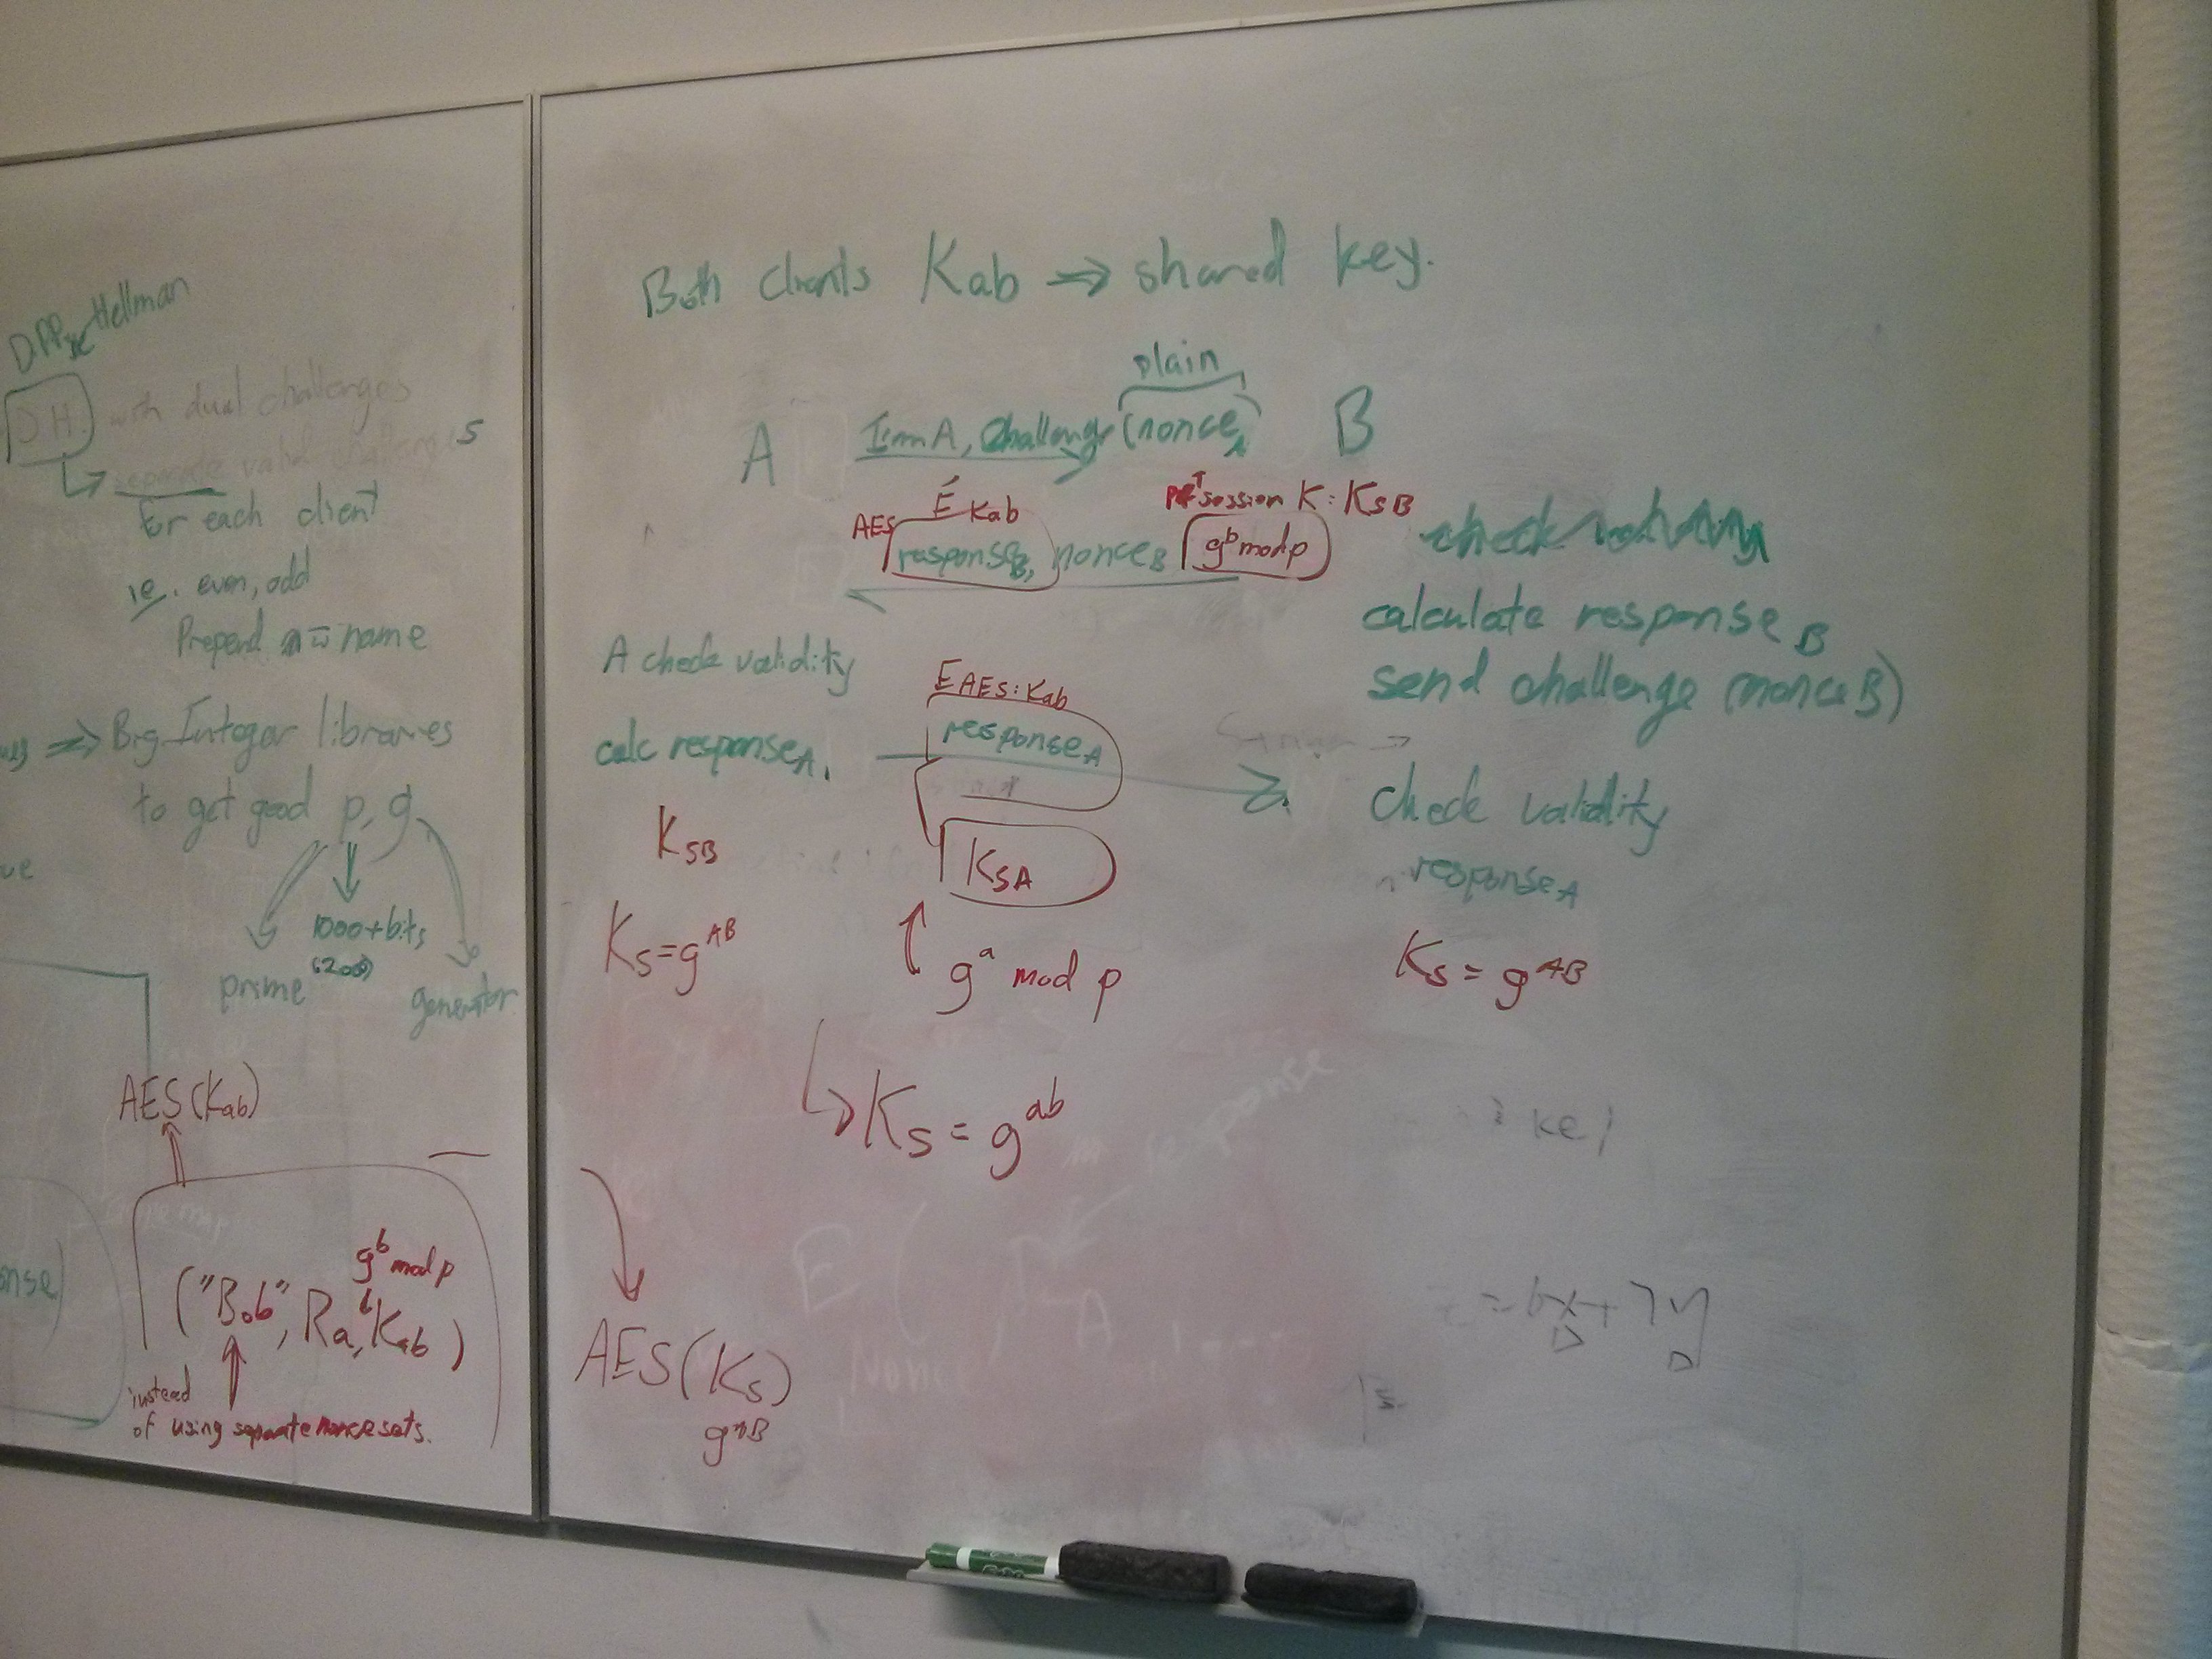 Diffie Hellman
DH with dual challenges
separate valid challenges
for each client
ie. even, odd
Prepend name
⇒ Big Integer libraries
to get good p, g
1000+ bits
prime
generator
AES(Kab)
g^b mod p
("Bob", Ra, Kab)
instead
of using separate nonce sets.
Both clients Kab ⇒ shared key.
plain
A I'm A, Challenge (nonce_A) B
E Kab session K: K_SB
AES response_B, nonce_B g^b mod p
calculate response_B
send challenge (nonce B)
A check validity
E AES: Kab
calc response_A. response_A
check validity
response_A
K_SB
K_SA
K_S = g^AB
g^a mod p
K_S = g^AB
K_S = g^ab
response
key
E (
A
Nonce
= 6x + 7y
AES(K_S)
g^AB